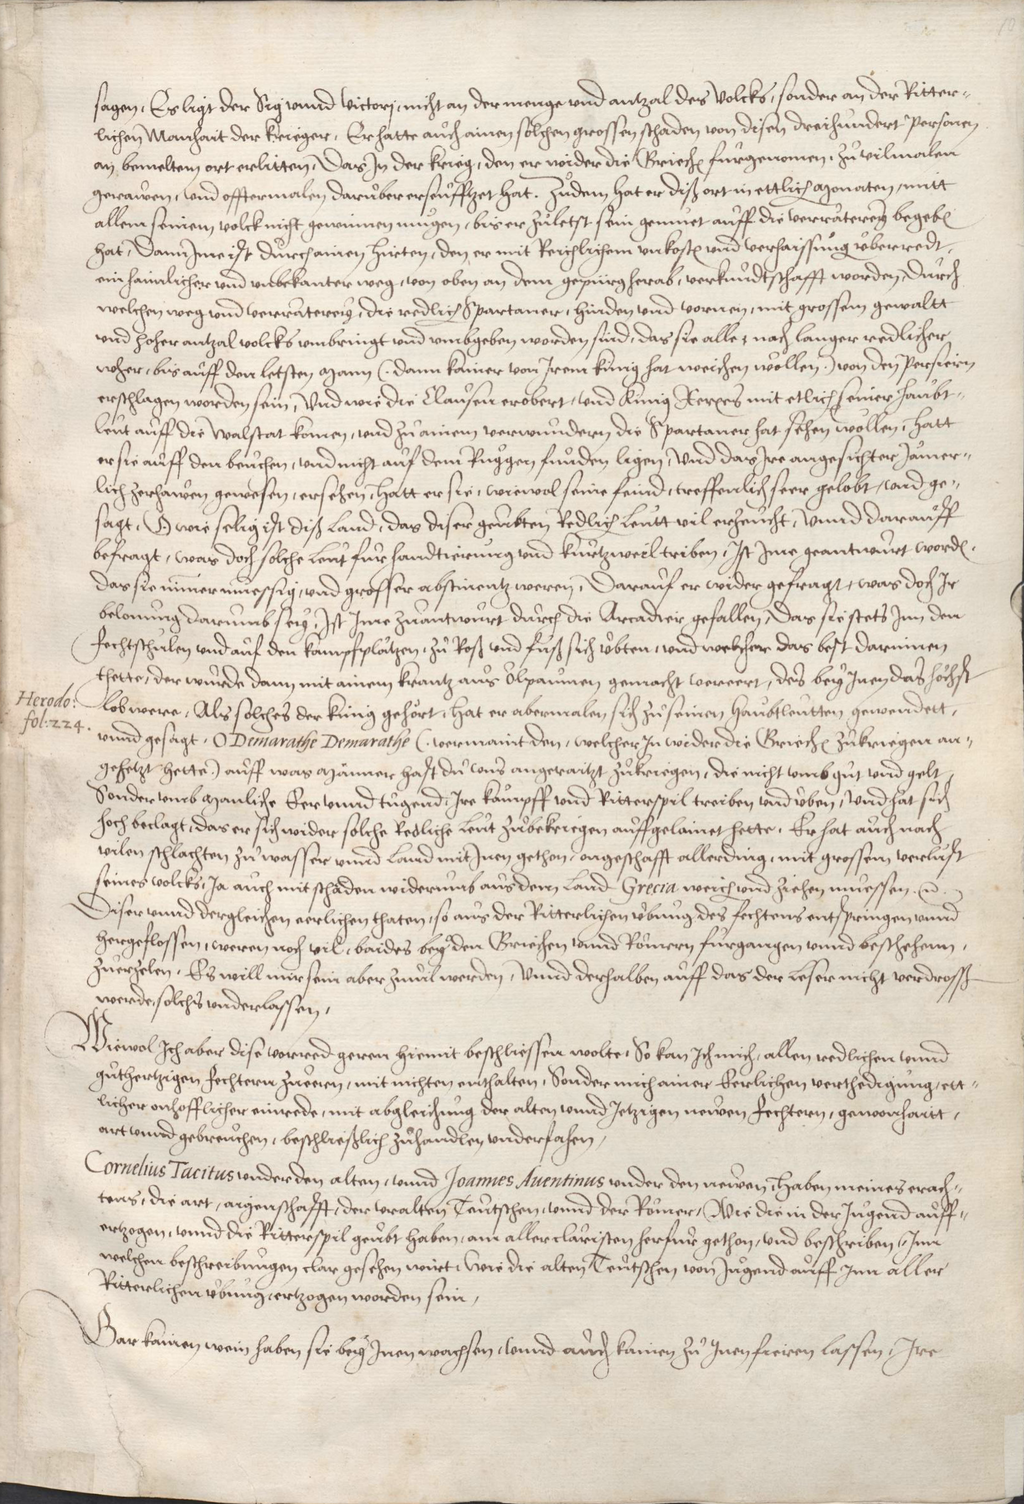 10
sagen, Es ligt der Sig vnnd victorj, nicht an der menge vnd antzal des volcks, sonder an der Ritter-
lichen Manhait der krieger, Er hatte auch ainen sölchen grossen schaden von disen dreihundert personen
an bemeltem ort erlitten, Das In der krieg, den er wider die Griech furgenomen, zu vilmalen
gerawen, vnd offtermalen darüber erseufftzet hat. Zudem hat er diß ort in ettlich Monaten, mitt
allem seinem volck nicht gewinnen mugen, bis er zuletst sein gemuet auff die verräterey begeben
hat, Dann Ime ist durch ainen hirten, den er mit Reichlichem vnkost vnd verhaissung vberredt,
ein hainlicher vnd vnbekanter weg, von oben an dem gepürg herab, verkundtschafft worden, durch
welchen weg vnd verräterey, die redlich Spartaner, hinden vnd vornen, mit grossem gewaltt
vnd hoher antzal volcks vmbringt vnd vmbgeben worden sind, das sie alle, nach langer redlicher
wher, bis auff den letsten Mann (dann kainer von Irem künig hat weichen wöllen) von den Persiern
erschlagen worden sein, Vnd wie die Clausen erobert, vnd Künig Xerxes mit etlich seiner haubt-
leut auff die Walstat komen, vnd zu ainem verwundern die Spartaner hat sehen wöllen, hatt
er sie auff den beuchen, vnd nicht auf dem Ruggen funden ligen, vnd das Ire angesichter Jamer-
lich zerhawen gewesen, ersehen, hatt er sie, wiewol seine feind, treffenlich seer gelobt, vnd ge-
sagt, O wie selig ist diß Land, das diser geübten Redlich Leutt vil erzeücht, Vnnd darauff
befragt, was doch solche leut fur handtierung vnd kurtzweil triben, Ist Ime geantwurt worden,
das sie nimer muessig, vnd grosser abstinentz weren, Darauf er wider gefragt, was doch Ir
belonung darumb sey, Ist Ime zuantwurt durch die Arcadier gefallen, Das sie stets Inn den
fechtschulen vnd auf den kampfplätzen, zu Roß vnd fuß sich vbten, vnd welcher das best darinnen
thette, der wurde dann mit ainem krantz aus Ölpaumen gemacht verehrt, des bey Inen das höchst
Herodo:
fol: 224.
lob were, Als solches der künig gehört, hat er abermalen sich zu seinen haubtleutten gewendett,
vnnd gesagt, O Demarathe Demarathe (vermaint den, welcher In wider die Griech zukriegen an-
gehetzt hette) auff was Männer hast du vns angeraitzt zukriegen, die nicht vmb gut vnd gelt,
Sonder vmb Manliche Eer vnnd tugend, Ire kämpff vnd Ritterspil treiben vnd vben, Vnd hat sich
hoch beclagt, das er sich wider solche Redliche leut zubekriegen auffgelainet hette. Er hat auch nach
vilen schlachten zu wasser vnnd Land mit Inen gethon, ongeschafft allerding, mit grossem verlust
seines volcks, Ja auch mit schaden widerumb aus dem Land Grecia weich vnd ziehen muessen.
Diser vnnd dergleichen eerlichen thaten, so aus der Ritterlichen vbung des fechtens entspringen vnnd
hergeflossen, weren noch vil, baides bey den Griechen vnnd Römern furgangen vnnd beschehenn,
zuerzelen. Es will mir sein aber zuuil werden, Vnnd derhalben auff das der Leser nicht verdross
werde, solchs vnderlassen,
Wiewol Ich aber dise vorred geren hiemit beschliessen wolte, So kan Ich mich, allen redlichen vnnd
guthertzigen fechtern zu eeren, mit nichten enthalten, Sonder mich ainer Eerlichen verthedigung, ett-
licher onhofflicher einrede, mit abgleichung der alten vnnd Jetzigen newen fechtern, gewonhaitt,
art vnnd gebreuchen, beschließlich zuhandlen vnderfahen,
Cornelius Tacitus vnder den alten, vnnd Joannes Auentinus vnder den newen, haben meines erach-
tens, die art, aigenschafft, der vralten Teutschen, vnnd der Römer, Wie die in der Jugend auff-
erzogen, vnnd die Ritterspil geübt haben, am aller claristen herfur gethon, vnd beschriben, Inn
welchen beschreibungen clar gesehen wirt, wie die alten Teutschen von Jugend auff Inn aller
Ritterlichen vbung, ertzogen worden sein,
Gar kainen wein haben sie bey Inen wachsen, vnnd auch kainen zu Inen fieren lassen, Ire